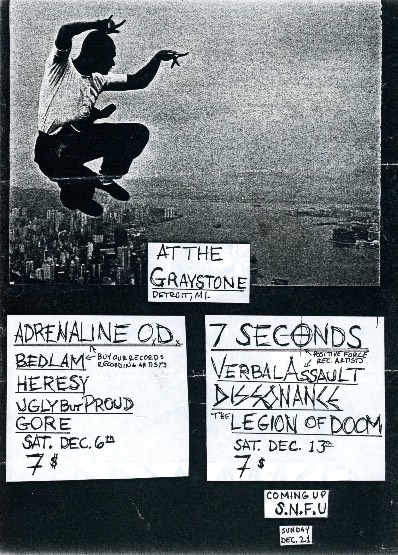 AT THE
GRAYSTONE
DETROIT, MI.
ADRENALINE O.D.
BUY OUR RECORDS
RECORDING ARTISTS
BEDLAM
HERESY
UGLY BUT PROUD
GORE
SAT. DEC. 6th
7$
7 SECONDS
POSITIVE FORCE
REC. ARTISTS
VERBAL ASSAULT
DISSONANCE
THE LEGION OF DOOM
SAT. DEC. 13th
7$
COMING UP
S.N.F.U
SUNDAY
DEC. 21